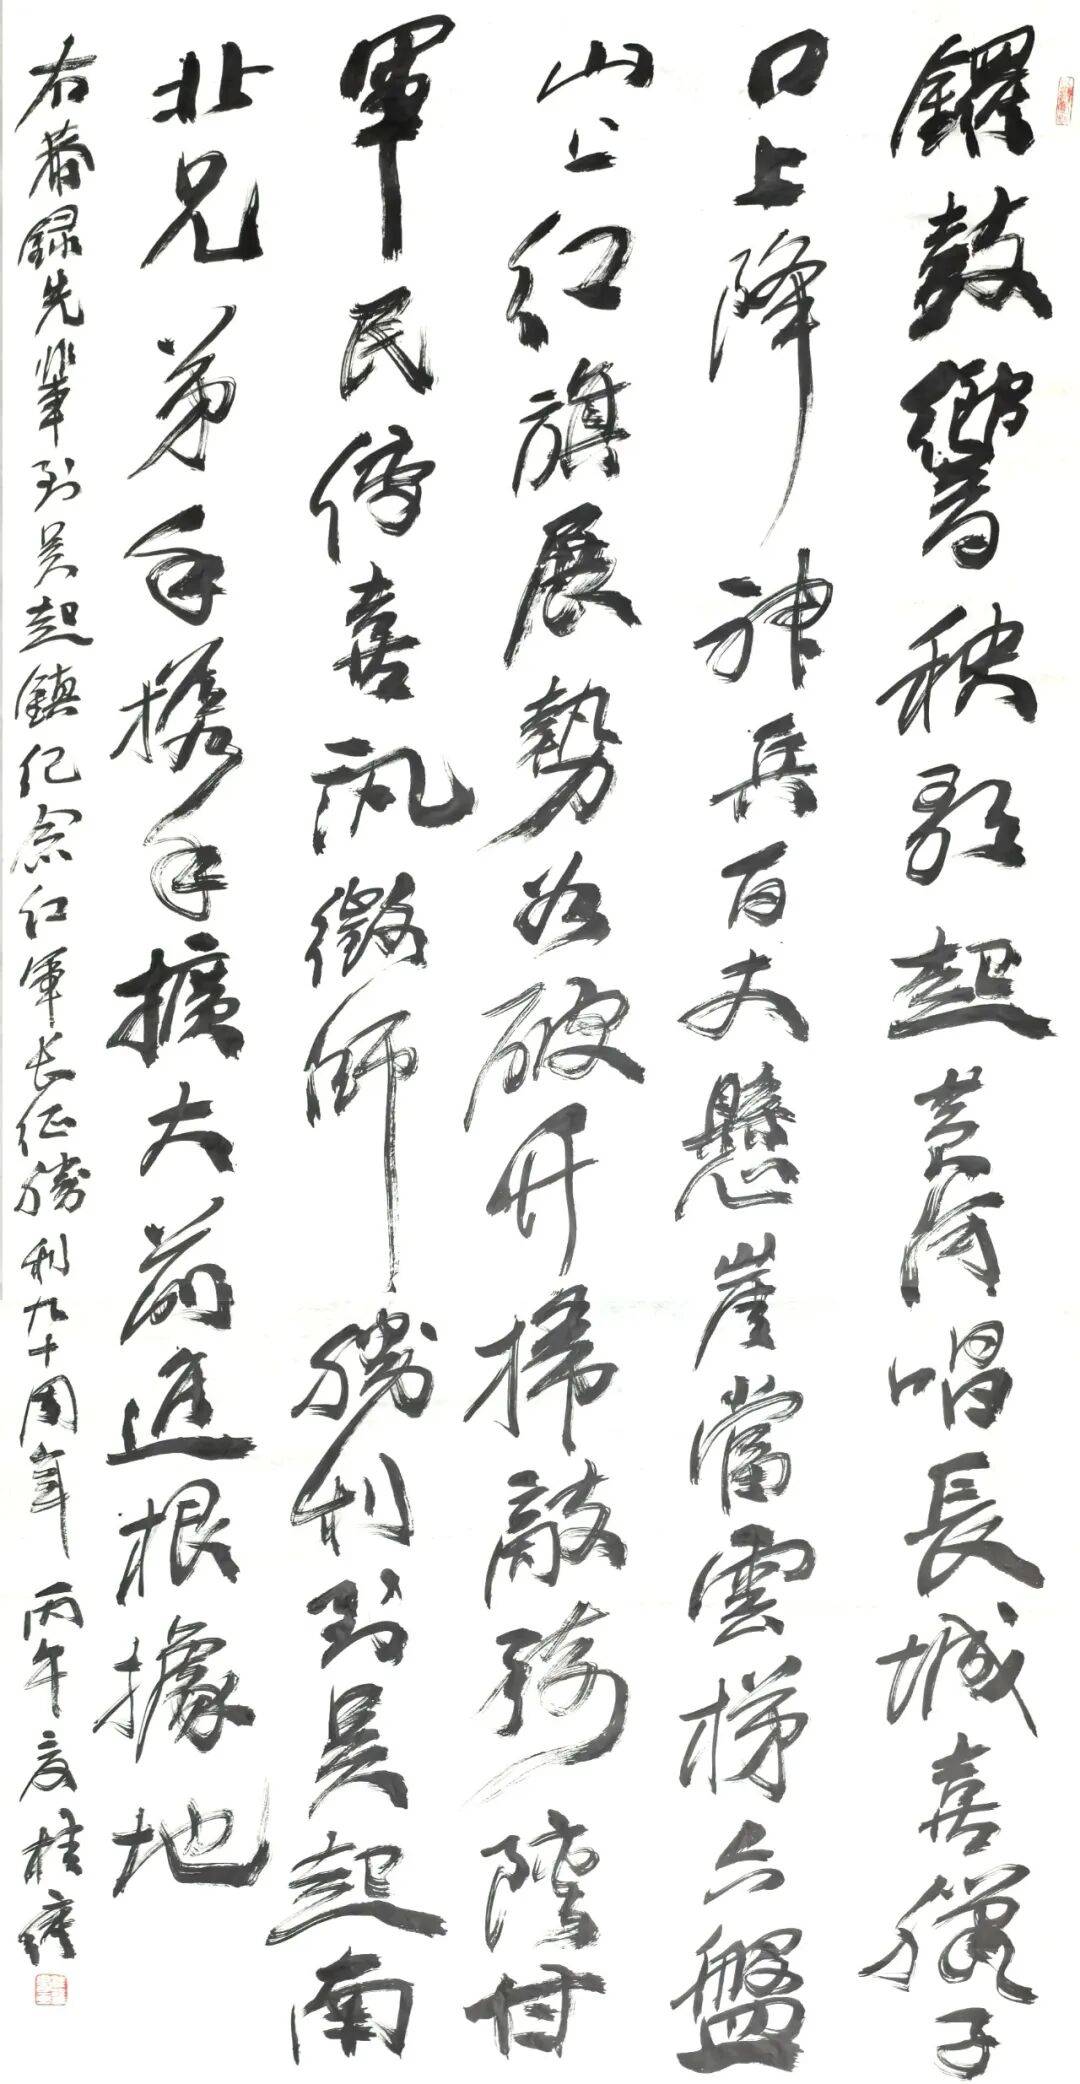 鑼鼓響秧歌起黃河唱長城喜臘子
口上降神兵百丈懸崖當雲梯六盤
山上红旗展勢如破竹掃敵騎甘
軍民傳喜訊徵師勝利到吳起南
北兄弟手攜手擴大前進根據地
右錄先輩到吳起鎮紀念红軍长征勝利九十周年 丙午夏桂